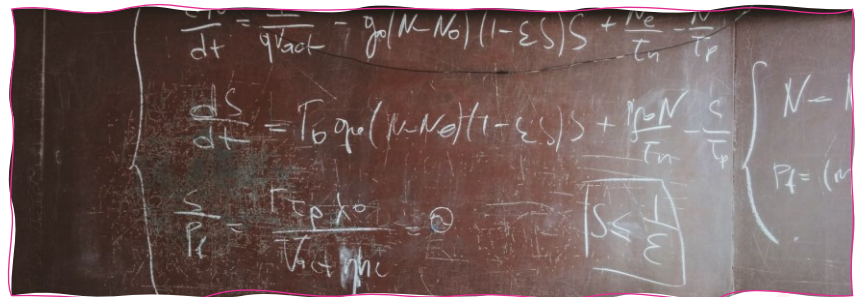 dN/dt = I/qVact - g₀(N-N₀)(1-εS)S + Ne/τn - N/τp
dS/dt = Γ₀g₀(N-N₀)(1-εS)S + N/τn - S/τp
S/Pf = Γτpλ₀/Vact ηhc =
S ≤ 1/ε
N -
Pf = (